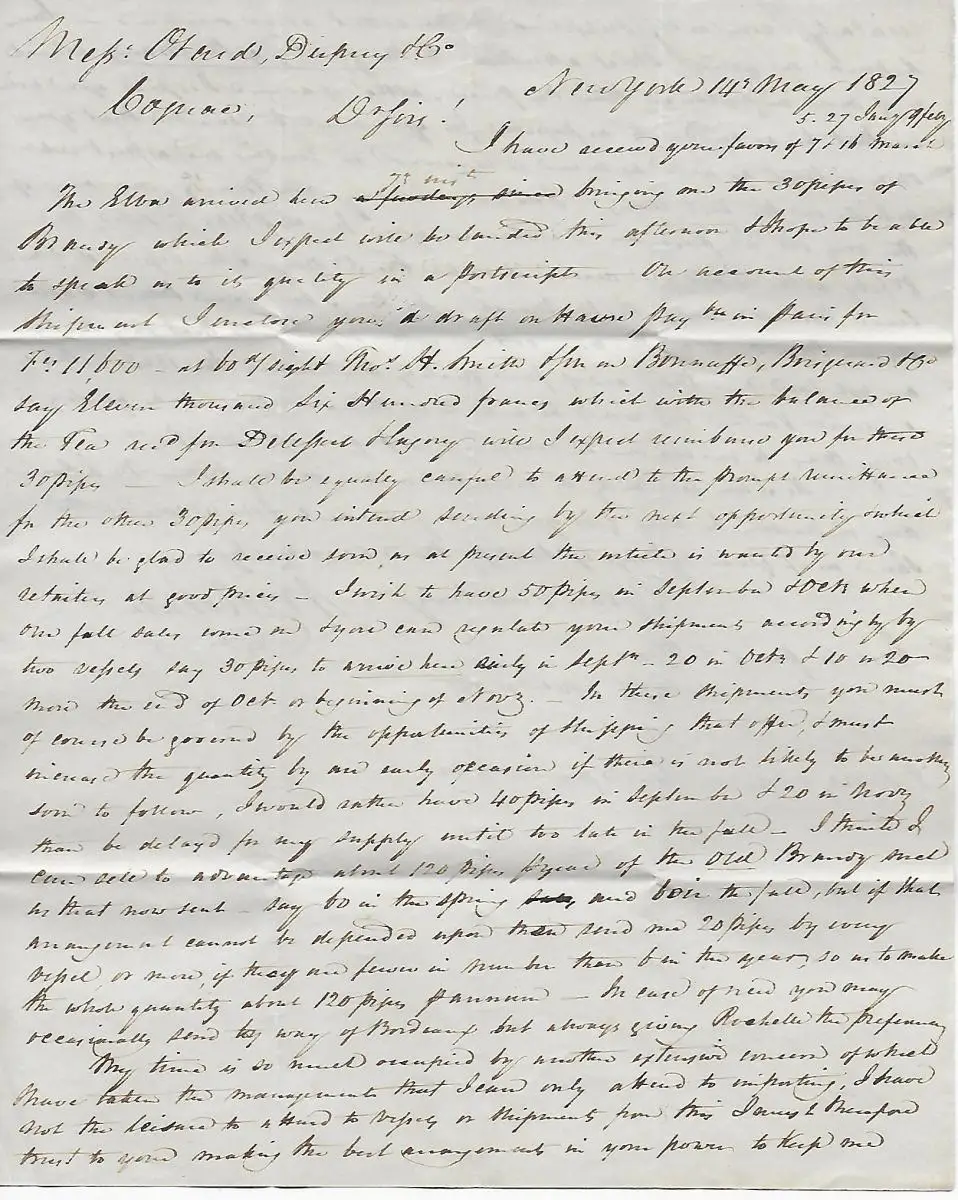 Messrs. Otard, Dupuy & Co
New York 14th May 1827
Cognac, Dr Sirs!
5. 27 Jany 9 feby
I have received your favors of 7 & 16 March
7th inst
The Elba arrived here a few days since bringing me the 30 pipes of
Brandy which I expect will be landed this afternoon & hope to be able
to speak as to its quality in a Postscript — On account of this
Shipment I enclose you a draft on Havre Payble in Paris for
Fcs 11,600 — at 60 d/sight Thos. H. Smith & Son on Bonnaffe, Boisgerard & Co
say Eleven thousand Six Hundred francs which with the balance of
the Tea recd for Delessert will I expect reimburse you for these
30 pipes — I shall be equally careful to attend to the prompt remittance
for the other 30 pipes you intend sending by the next opportunity & which
I shall be glad to receive soon, as at present the article is wanted by our
retailers at good prices — I wish to have 50 pipes in September & Octr when
our fall sales come on & you can regulate your shipments accordingly by
two vessels say 30 pipes to arrive here early in Septr — 20 in Octr & 10 or 20
more the end of Octr or beginning of Novr. — In these shipments you must
of course be governed by the opportunities of shipping that offer, & must
increase the quantity by an early occasion if there is not likely to be another
soon to follow, I would rather have 40 pipes in September & 20 in Novr
than be delayed for my supply until too late in the fall — I think I
can sell to advantage about 120 pipes pr year of the Old Brandy such
as that now sent — say 60 in the spring and 60 in the fall, but if that
arrangement cannot be depended upon then send me 20 pipes by every
vessel, or more, if they are fewer in number than 6 in the year, so as to make
the whole quantity about 120 pipes pr annum — In case of need you may
occasionally send by way of Bordeaux but always giving Rochelle the preference
My time is so much occupied by another extensive concern of which
I have taken the management that I can only attend to importing, I have
not the leisure to attend to vessels or shipments from this & therefore
trust to your making the best arrangements in your power to keep me